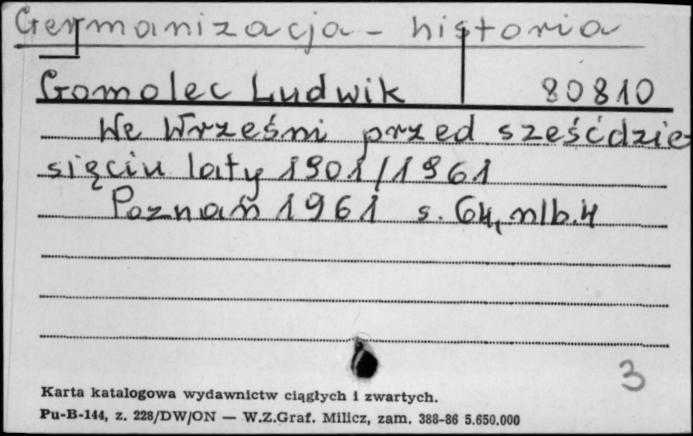 Germanizacja - historia
Gomolec Ludwik 80810
We Wrześni przed sześćdzie
sięciu laty 1901/1961
Poznań 1961 s. 64, nlb. 4
3
Karta katalogowa wydawnictw ciągłych i zwartych.
Pu-B-144, z. 228/DW/ON — W.Z.Graf. Milicz, zam. 388-86 5.650.000